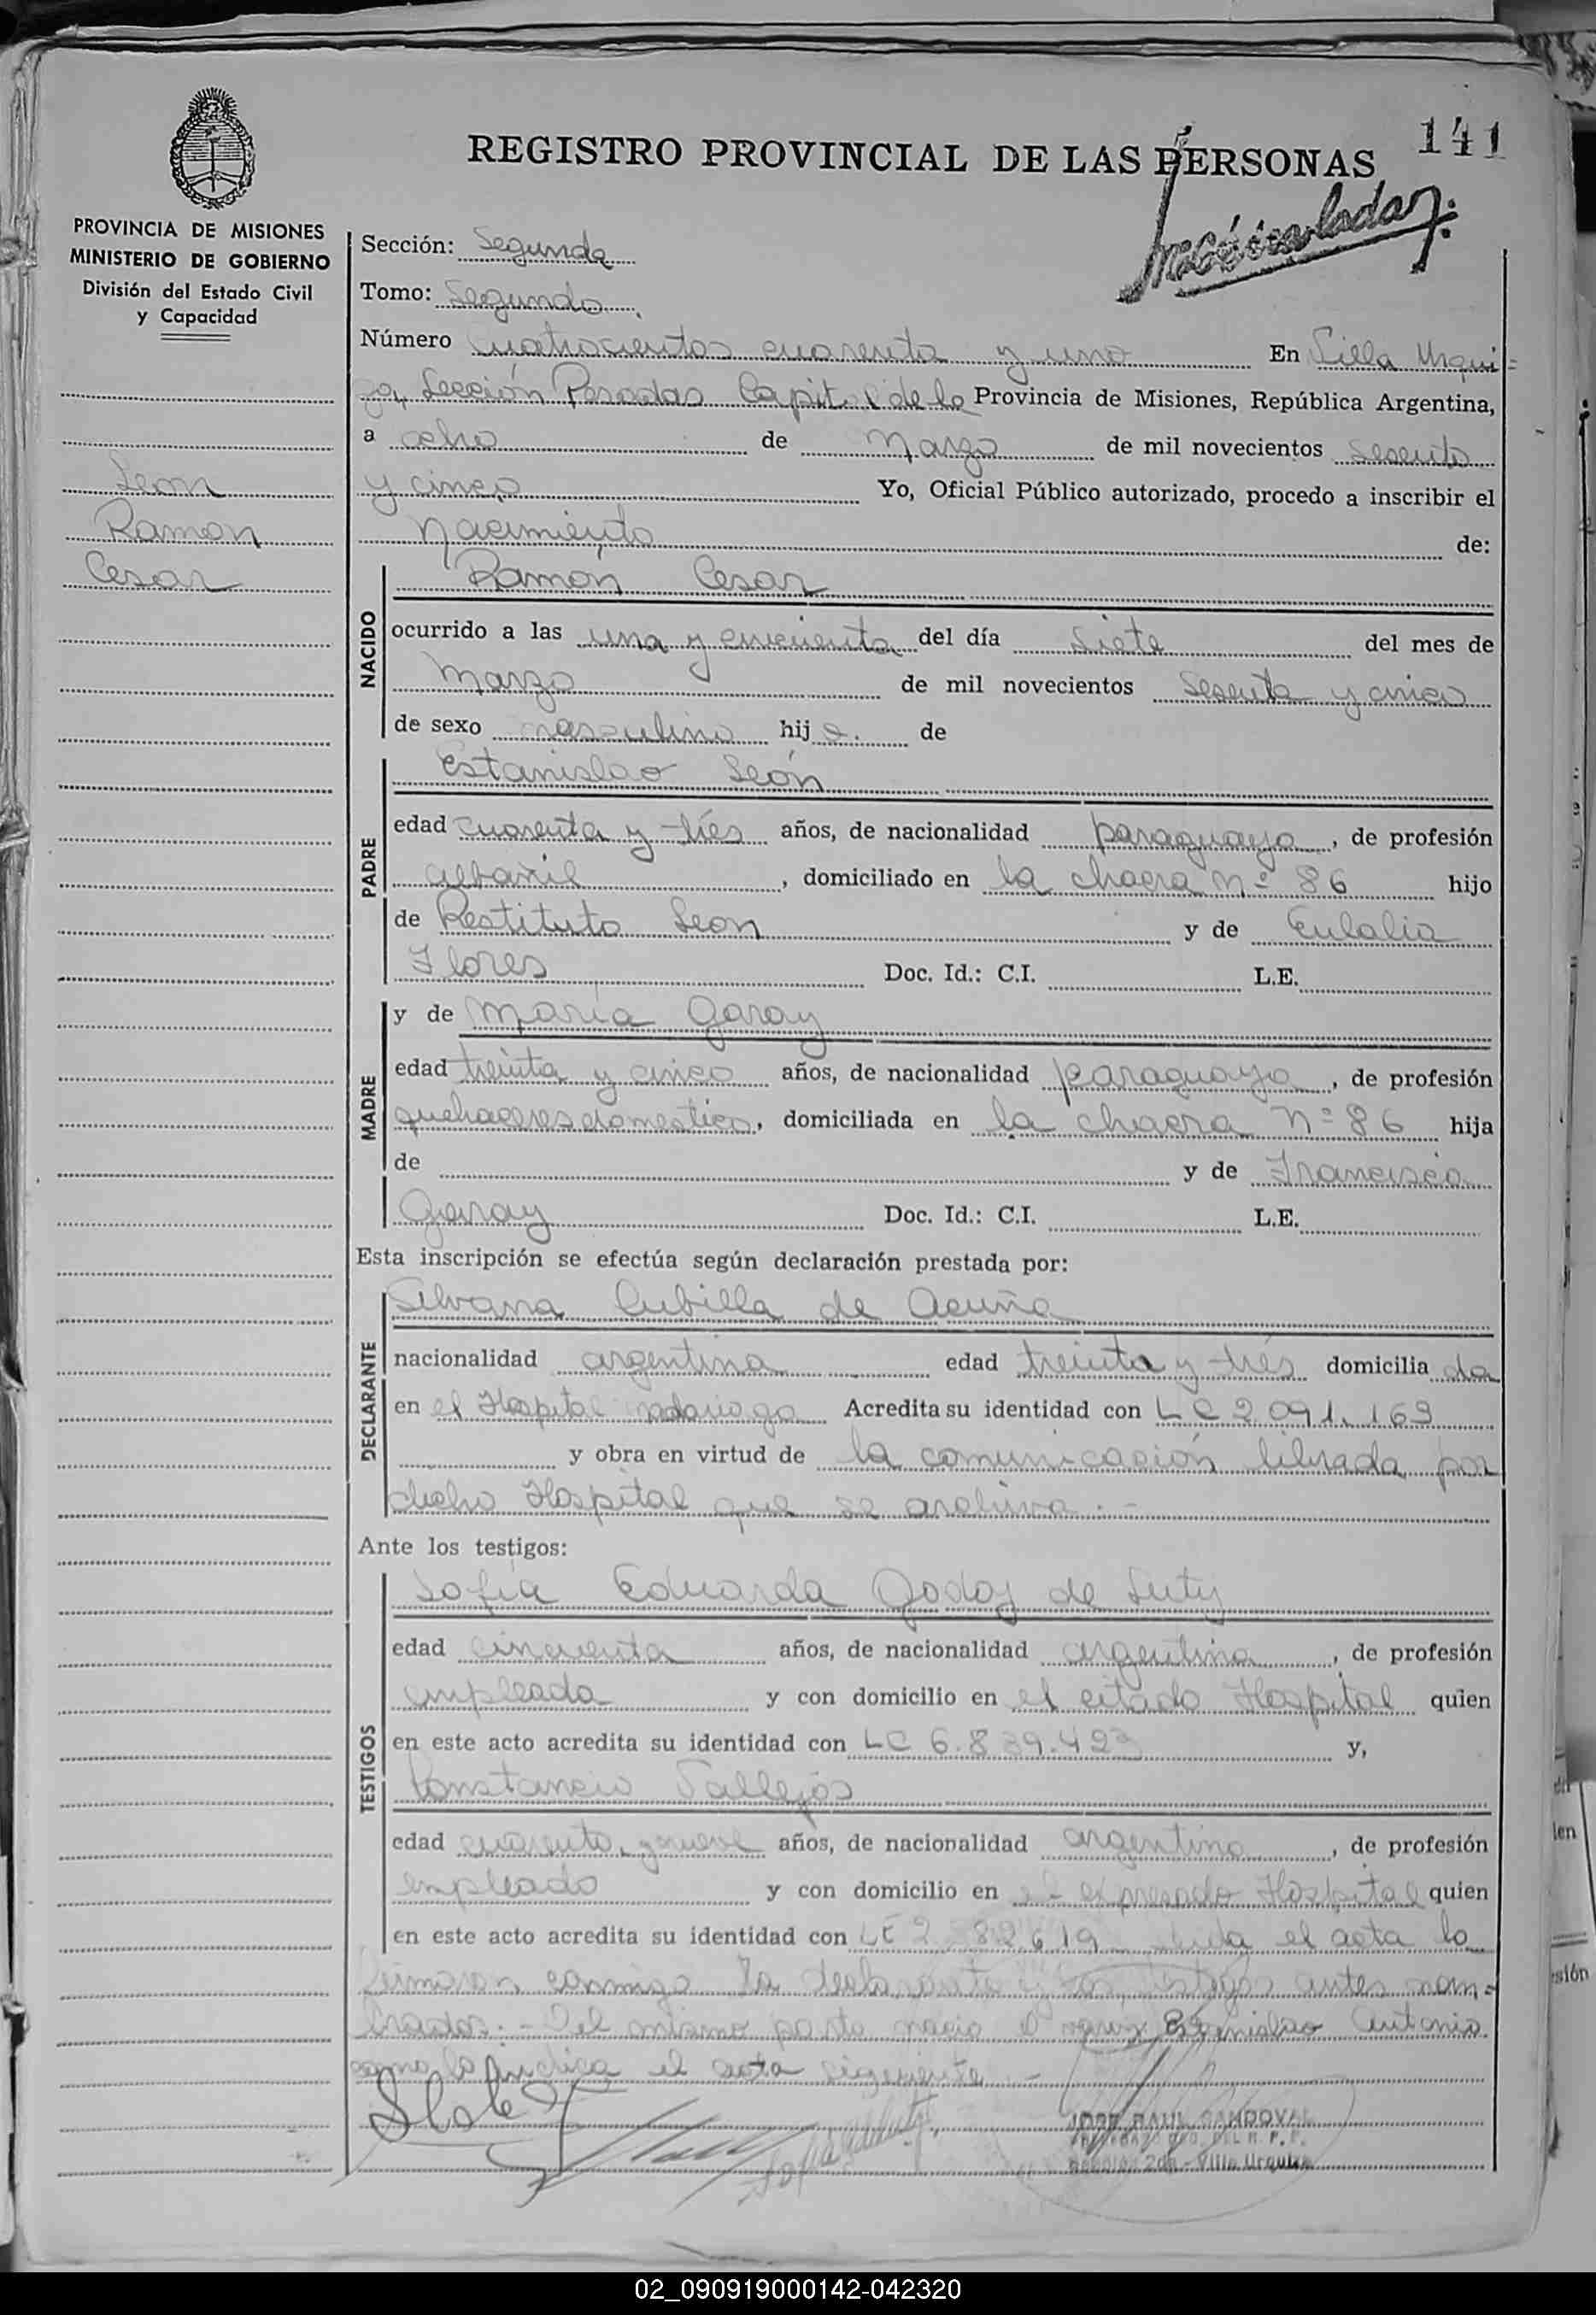 REGISTRO PROVINCIAL DE LAS PERSONAS
141
PROVINCIA DE MISIONES
MINISTERIO DE GOBIERNO
División del Estado Civil
y Capacidad
Leon
Ramon
Cesar
Sección: Segunda
Tomo: Segundo
Número cuatrocientos cuarenta y uno En Villa Urqui=
za, Sección Posadas Capital de la Provincia de Misiones, República Argentina,
a ocho de Marzo de mil novecientos sesenta
y cinco Yo, Oficial Público autorizado, procedo a inscribir el
Nacimiento de:
NACIDO
Ramón Cesar
ocurrido a las una y cincuenta del día siete del mes de
Marzo de mil novecientos sesenta y cinco
de sexo masculino hijo. de
PADRE
Estanislao León
edad cuarenta y trés años, de nacionalidad paraguaya, de profesión
albañil, domiciliado en la chacra Nº 86 hijo
de Restituto Leon y de Eulalia
Flores Doc. Id.: C.I. L.E.
MADRE
y de María Garay
edad treinta y cinco años, de nacionalidad paraguaya, de profesión
quehaceres domestico, domiciliada en la chacra Nº 86 hija
de y de Francisca
Garay Doc. Id.: C.I. L.E.
Esta inscripción se efectúa según declaración prestada por:
DECLARANTE
Silvana Cubilla de Acuña
nacionalidad argentina edad treinta y trés domiciliada
en el Hospital Madariaga Acredita su identidad con LC 2.091.169
y obra en virtud de la comunicación librada por
dicho Hospital que se archiva.-
Ante los testigos:
TESTIGOS
Sofía Eduarda Godoy de
edad cincuenta años, de nacionalidad argentina, de profesión
empleada y con domicilio en el citado Hospital quien
en este acto acredita su identidad con LC 6.839.423 y,
Constancio Vallejos
edad cuarenta y nueve años, de nacionalidad argentina, de profesión
empleado y con domicilio en el expresado Hospital quien
en este acto acredita su identidad con LE el acta la
firmaron conmigo la declarante y los testigos antes nom=
brados.- Del mismo parto nacio Estanislao Antonio
como lo indica el acta siguiente.-
JOSE RAUL SANDOVAL
2da - Villa Urquiza
02_090919000142-042320